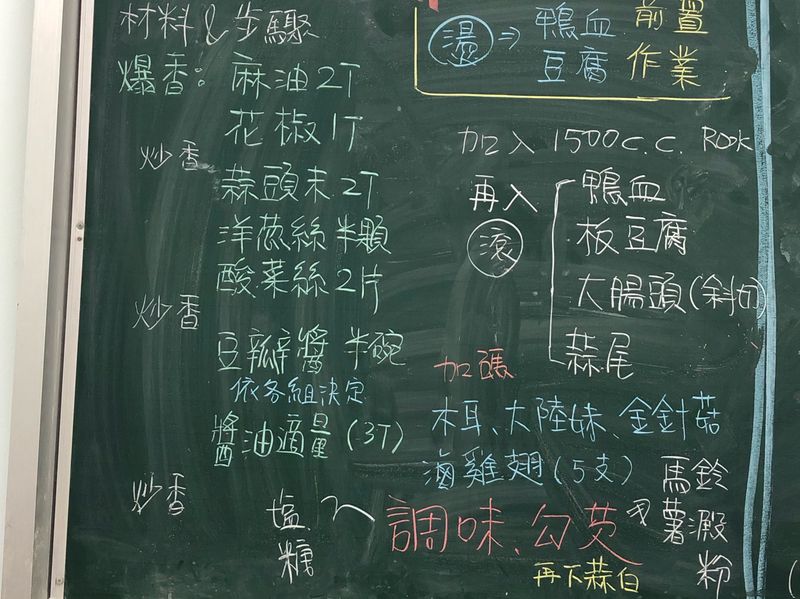 材料&步驟
爆香：麻油2T
花椒1T
炒香
蒜頭末2T
洋蔥絲半顆
酸菜絲2片
炒香
豆瓣醬半碗
依各組決定
醬油適量(3T)
炒香
塩
糖
燙⇒鴨血
豆腐
前置
作業
加入1500c.c.
再入
滾
鴨血
板豆腐
大腸頭(斜切)
蒜尾
加碼
木耳、大陸妹、金針菇
滷雞翅(5支)
調味、勾芡
馬鈴
薯澱
粉
再下蒜白